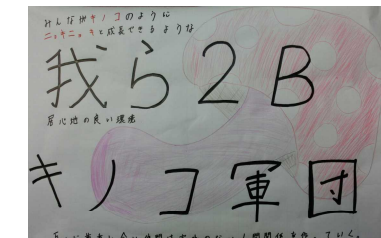 みんながキノコのように
ニョキニョキと成長できるような
我ら2B
居心地の良い環境
キノコ軍団